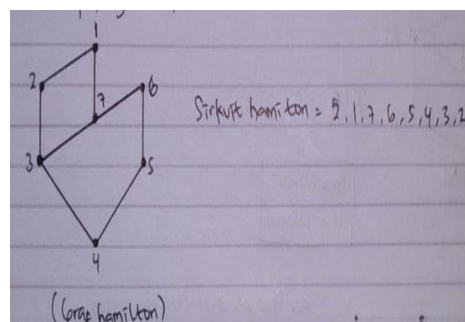 1
2
6
7
Sirkuit hamilton = 2, 1, 7, 6, 5, 4, 3, 2
3
5
4
(Graf hamilton)